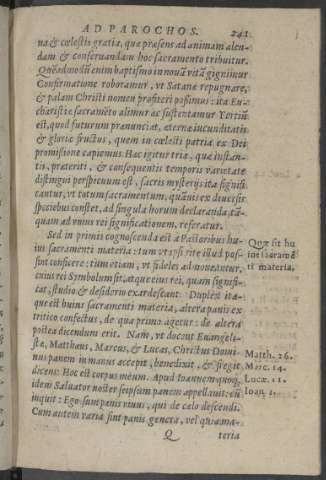 AD PAROCHOS. 241
na & cœlestis gratia, qua præsens ad animam alen-
dam & conseruandam hoc sacramento tribuitur.
Quẽadmodũ enim baptismo in nouã vitã gignimur
Confirmatione roboramur, vt Satanæ repugnare,
& palam Christi nomen profiteri possimus: ita Eu-
charistiæ sacramẽto alimur ac sustentamur Tertiũ
est, quod futurum prænunciat, æternæ iucunditatis
& gloriæ fructus, quem in cœlesti patria ex Dei
promissione capiemus Hæc igitur tria, quæ instan-
tis, præteriti, & consequentis temporis varietate
distingui perspicuum est, sacris mysterijs ita signifi-
cantur, vt totum sacramentum, quãuis ex diuersis
speciebus constet, ad singula horum declaranda tã-
quam ad vnius rei significationem, referatur.
Sed in primis cognoscenda est à Pastoribus hu-
ius sacramenti materia: tum vt ipsi rite illud pos-
sint conficere: tum etiam, vt fideles admoneantur,
cuius rei Symbolum sit, atque eius rei, quam signifi-
cat, studio & desiderio exardescant. Duplex ita-
que est huius sacramenti materia, altera panis ex
tritico confectus, de qua primo agetur: de altera
postea dicendum erit. Nam, vt docent Euangeli-
stæ, Matthæus, Marcus, & Lucas, Christus Domi-
nus panem in manus accepit, benedixit, & fregit
dicens: Hoc est corpus meum. Apud Ioannem quoq;
idem Saluator noster seipsum panem appellauit, cũ
inquit: Ego sum panis viuus, qui de cœlo descendi.
Cum autem varia sint panis genera, vel quia ma-
Q teria
Quæ sit hu
ius sacramẽ
ti materia,
Matth. 26.
Marc. 14.
Lucæ. 22.
Ioan.